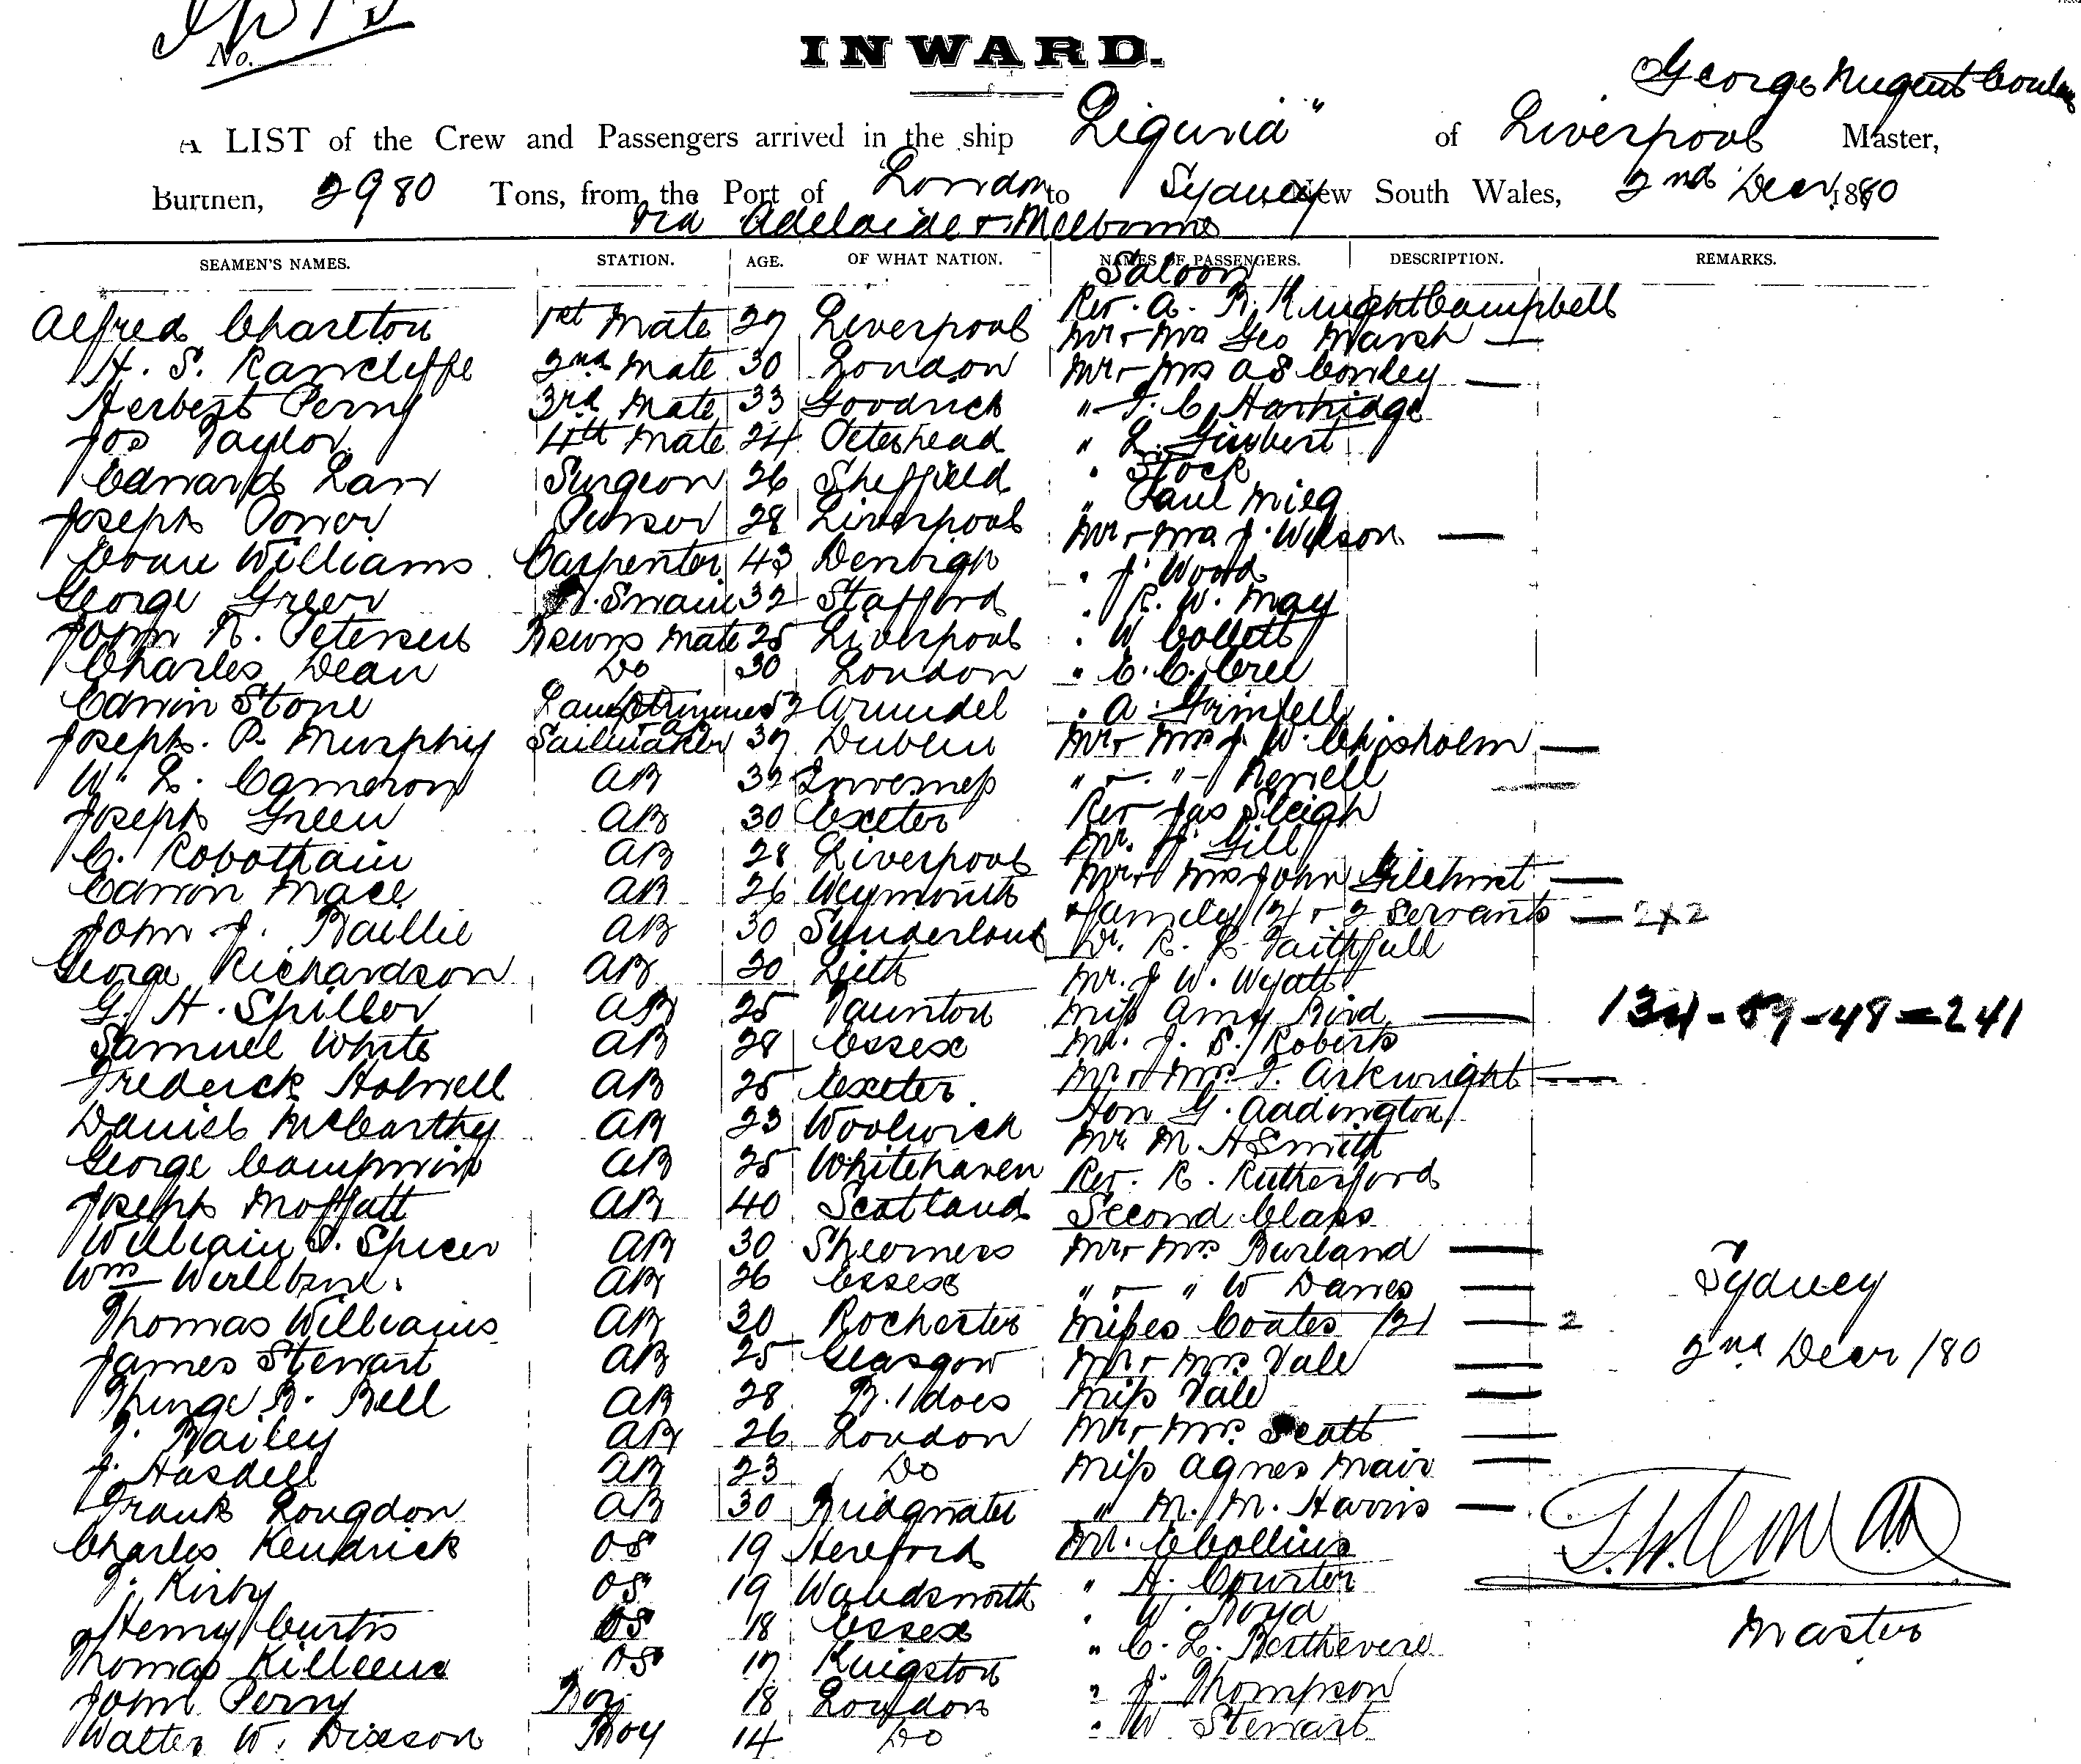 No.
INWARD.
George Nugent
A LIST of the Crew and Passengers arrived in the ship "Liguria" of Liverpool Master,
Burthen, 2980 Tons, from the Port of London to Sydney New South Wales, 2nd Decr 1880
via Adelaide & Melbourne
SEAMEN'S NAMES. STATION. AGE. OF WHAT NATION. NAMES OF PASSENGERS. DESCRIPTION. REMARKS.
Saloon
Alfred Charlton 1st Mate 27 Liverpool Rev. A. R. Knight Campbell
Mr & Mrs Geo Marsh —
H. S. Rancliffe 2nd Mate 30 London Mr & Mrs A S Conley —
Herbert Perry 3rd Mate 33 Goodrich " T. C. Hartridge
Jos Taylor 4th Mate 24 Peterhead " L.
Edward Law Surgeon 26 Sheffield " Stock
Joseph Power Purser 28 Liverpool " Paul Mieg
Mr & Mrs J. Wilson —
Evan Williams Carpenter 43 Denbigh " J. Wood
George Green B. Swain 32 Stafford " R. W. May
John R. Petersen Bswns Mate 25 Liverpool " W Collett
Charles Dean Do 30 London " C. C.
Edwin Stone Lamptrimmer 52 Arundel " A.
Joseph P. Murphy Sailmaker 37 Dublin Mr & Mrs J. W. Chisholm —
W. L. Cameron AB 32 Inverness " & " Rewell
Joseph Green AB 30 Exeter Rev Jas Sleigh
C. Robotham AB 28 Liverpool Mr. Gill
Edwin Mace AB 26 Weymouth Mr & Mrs John Gilchrist —
John J. Baillie AB 30 Sunderland & family (2) & 2 Servants — 2+2
Dr. R. L. Faithfull
George Richardson AB 30 Leith Mr. J W. Wyatt
G. H. Spiller AB 25 Taunton Miss Amy Bird — 134-59-48=241
Samuel White AB 28 Essex Mr. J. S. Roberts
Frederick Holwell AB 25 Exeter Mr & Mrs F. Arkwright —
Daniel McCarthy AB 23 Woolwich Hon G. Addington
Mr M. H Smith
George AB 25 Whitehaven Rev. R. Rutherford
Joseph Moffatt AB 40 Scotland Second Class
William S. Spicer AB 30 Sheerness Mr & Mrs Burland —
Wm AB 26 Essex " & " W Davies —
Thomas Williams AB 30 Rochester Misses Coates (2) — 2
James Stewart AB 25 Glasgow Mr & Mrs Vale —
B. Bell AB 28 B. Miss Vale —
T. Bailey AB 26 London Mr & Mrs Scott —
J. Hasdell AB 23 Do Miss Agnes Mair —
Frank Longdon AB 30 Bridgwater " M. M. Harris —
Charles Kendrick OS 19 Hereford Mr. C Collins
T. Kirby OS 19 Wandsworth " H. Courter
Henry Curtis OS 18 Essex " W. Boyd
Thomas Killeen OS 17 Kingston " C. L.
John Perry Boy 18 London " J. Thompson
Walter W. Dixson Boy 14 Do " W Stewart
Sydney
2nd Decr /80
Master